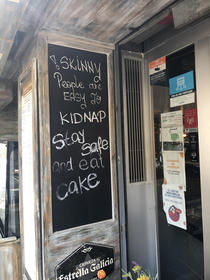 ! SKINNY
People are
Easy To
KIDNAP
Stay
Safe
and eat
CAKE
CERVEZA
Estrella Galicia